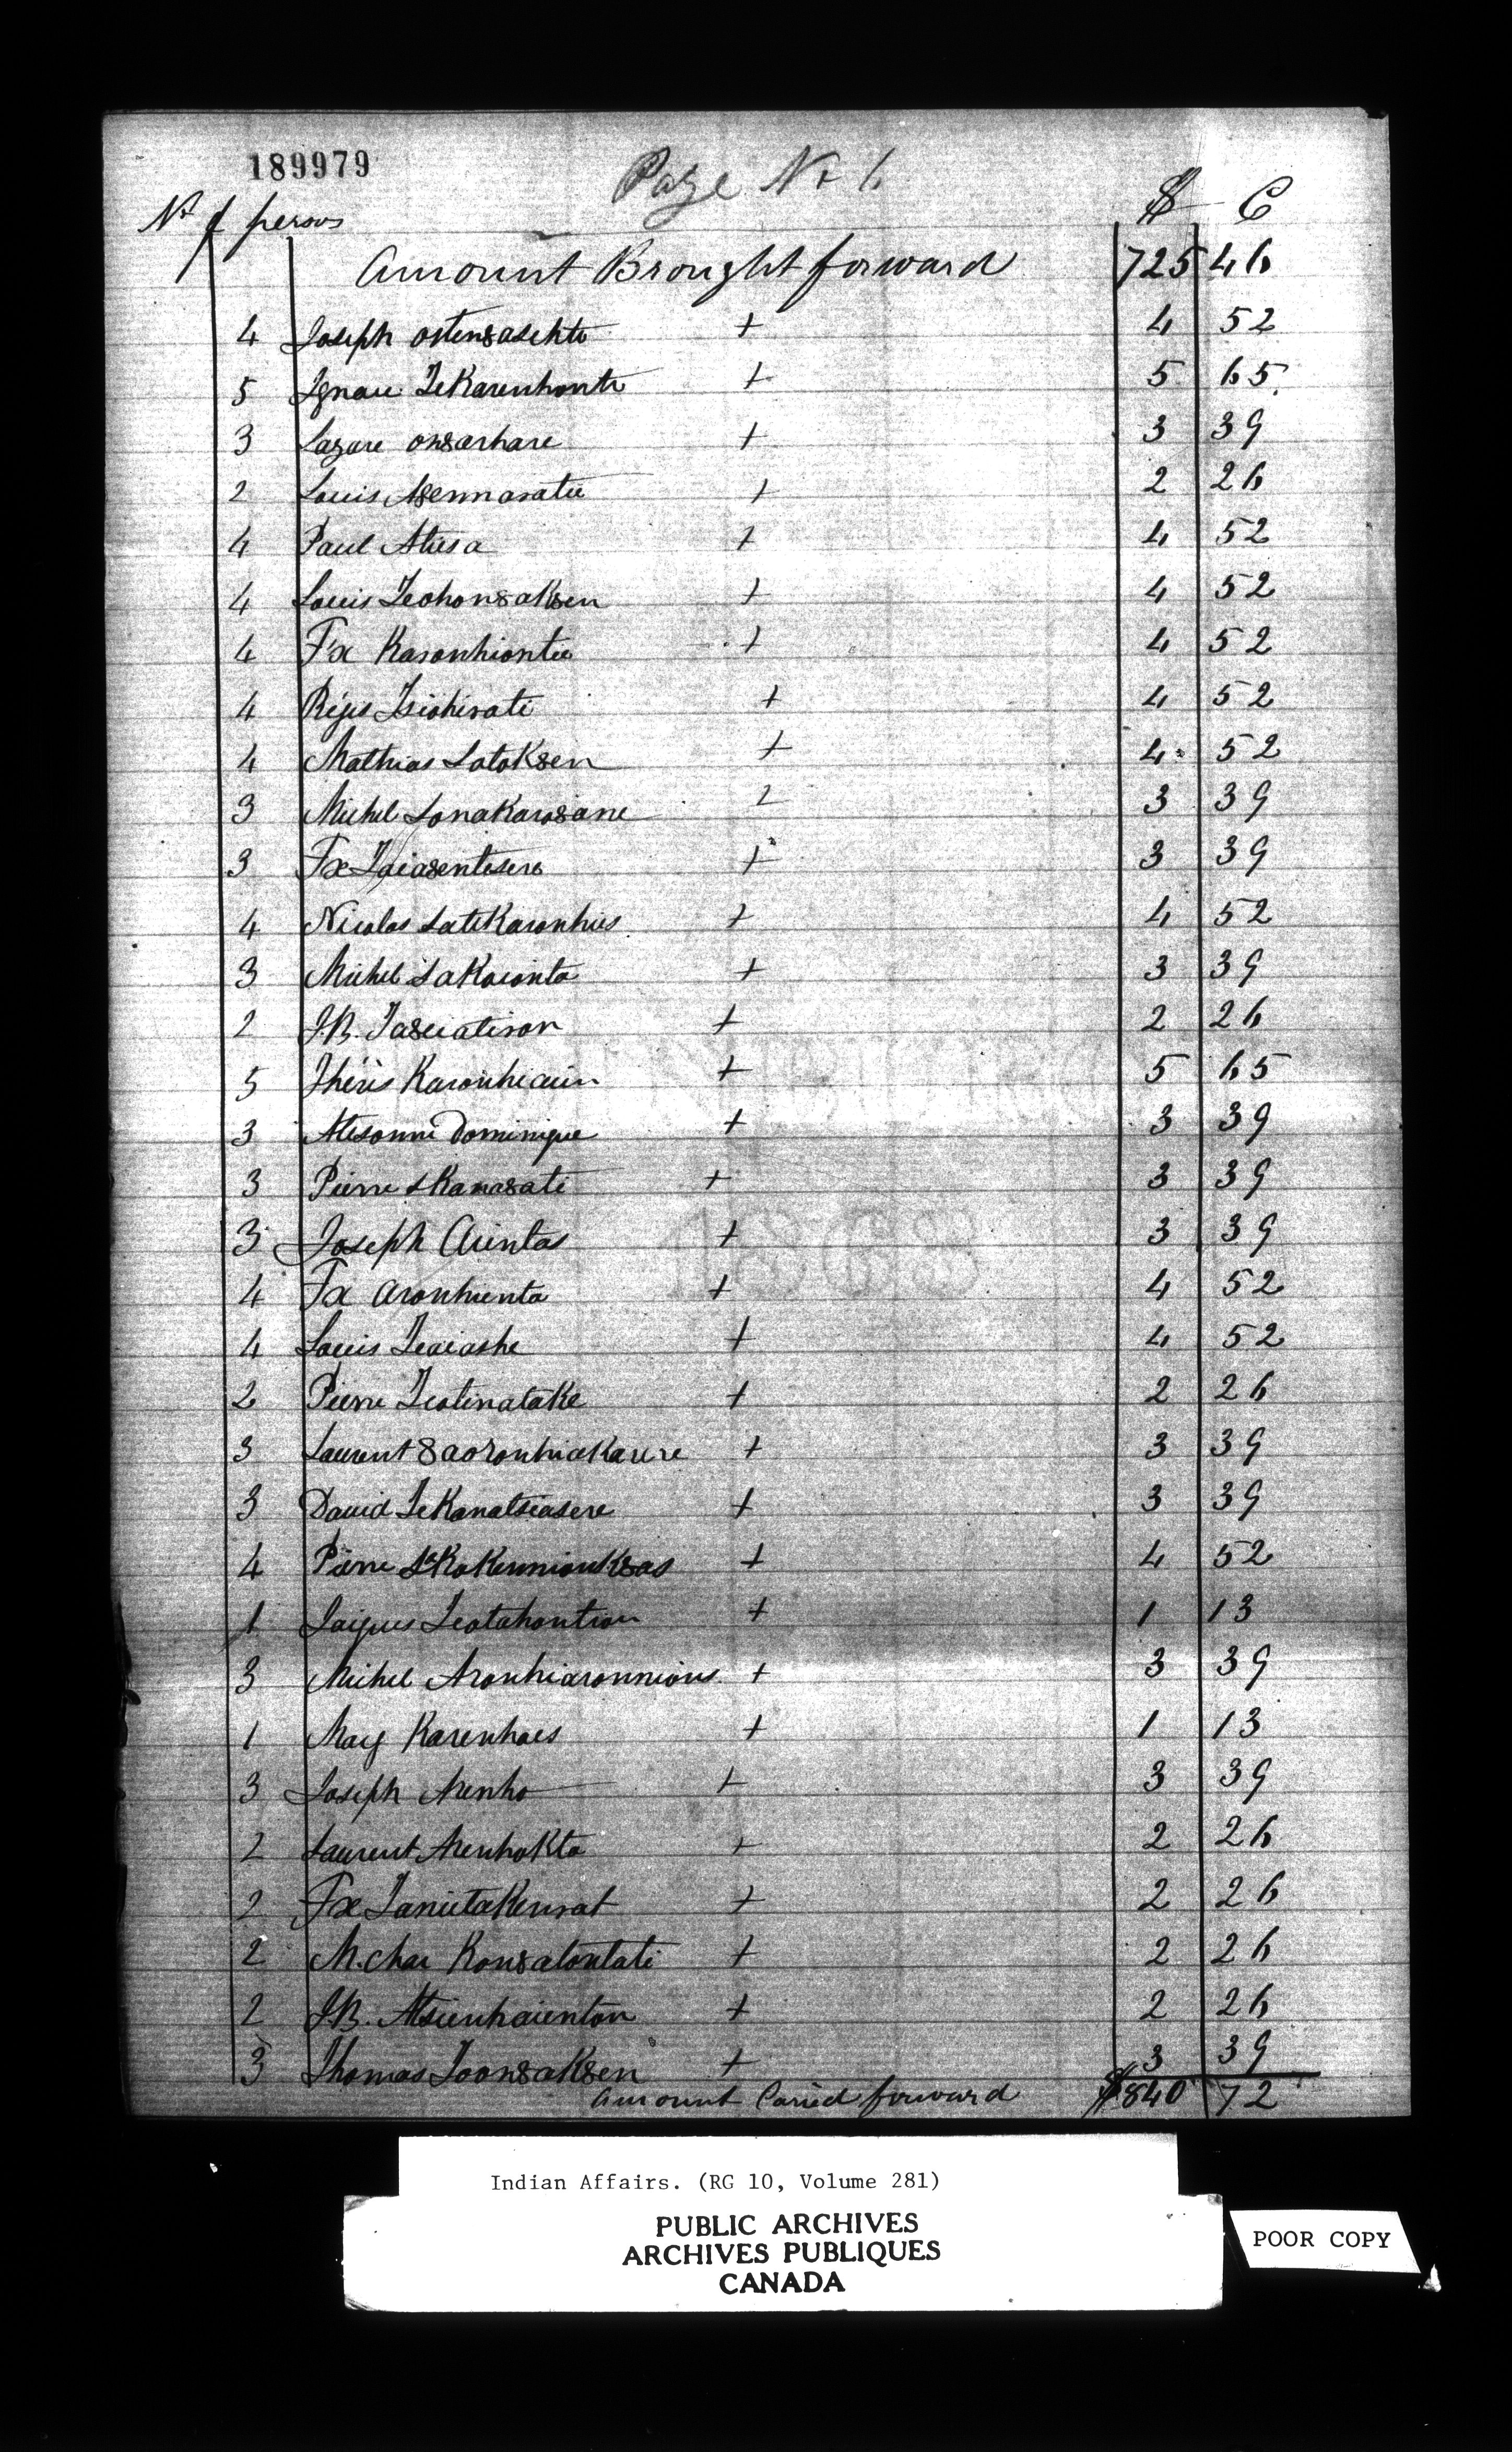 189979
Page No 6
No of persons $ C
Amount Brought forward 725 46
4 Joseph Oten8asehte + 4 52
5 Ignace TeKarenhonte + 5 65
3 Lazare on8arhare + 3 39
2 Louis A8ennaratie + 2 26
4 Paul Atiesa + 4 52
4 Louis Teohon8aK8en + 4 52
4 Fx Karonhiontie + 4 52
4 Régis Tsiohérati + 4 52
4 Mathias SatoK8en + 4 52
3 Michel SonaKaro8ane 3 39
3 Fx Taia8entesere + 3 39
4 Nicolas SateKaronhies + 4 52
3 Michel SaKoionta + 3 39
2 J.B. Ta8eiatiron + 2 26
5 Théris Karonhiaien + 5 65
3 Atesonni Dominique + 3 39
3 Pierre sKana8ati + 3 39
3 Joseph Arientas + 3 39
4 Fx Aronhienta + 4 52
4 Louis Teaiashe + 4 52
2 Pierre TeotinataKe + 2 26
3 Laurent 8aoronhiaKarere + 3 39
3 David TeKanatsiasere + 3 39
4 Pierre SaKoKennionK8as + 4 52
1 Jaques Teotahontion + 1 13
3 Michel Aronhiaronnions + 3 39
1 May Karenhoes + 1 13
3 Joseph Arenho + 3 39
2 Laurent ArenhoKta + 2 26
2 Fx TanietaKenrat + 2 26
2 M. Char Kon8atontati + 2 26
2 J.B. Atsienhaienton + 2 26
3 Thomas Toon8aK8en + 3 39
amount Caried forward $840 72
Indian Affairs. (RG 10, Volume 281)
PUBLIC ARCHIVES
ARCHIVES PUBLIQUES
CANADA
POOR COPY